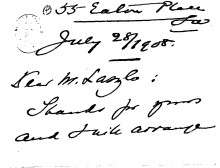 55 Eaton Place
SW
July 28/1908.
Dear M. Laszlo:
Thanks for yours
and I will arrange